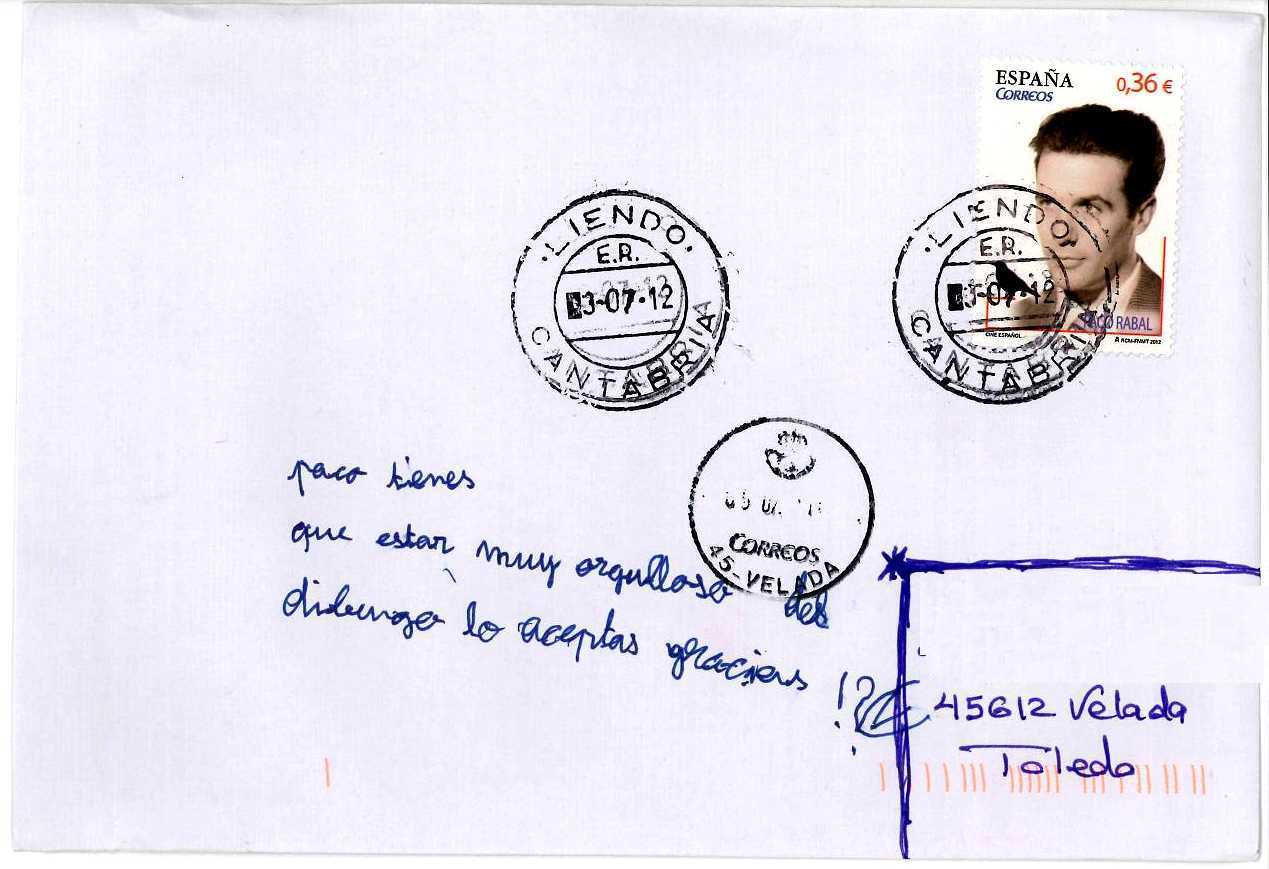 ESPAÑA
0,36 €
CORREOS
PACO RABAL
CINE ESPAÑOL
RCM-FNMT 2012
·LIENDO·
E.R.
3-07·12
CANTABRIA
·LIENDO·
E.R.
3-07·12
CANTABRIA
CORREOS
45-VELADA
paco tienes
que estar muy orgulloso del
dibungo lo aceptas gracias
!?
45612 Velada
Toledo